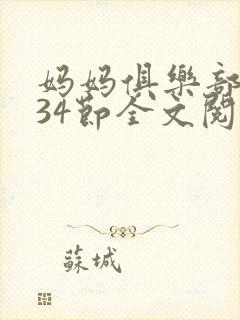 妈妈俱樂部
34節全文閱
蘇城